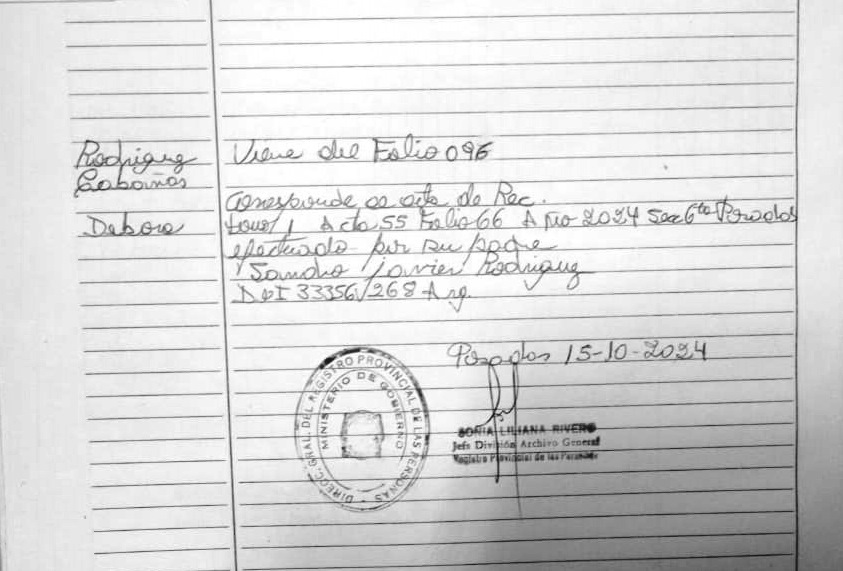 Rodriguez
Cabañas
Debora
Viene del Folio 096
Corresponde al acta de Rec.
tomo 1 Acta 55 Folio 66 Año 2024 Sec 6ta Posadas
efectuado por su padre
Sandro Javier Rodriguez
DNI 33356/268 Arg.
Posadas 15-10-2024
DIRECC. GRAL. DEL REGISTRO PROVINCIAL DE LAS PERSONAS
MINISTERIO DE GOBIERNO
SONIA LILIANA RIVERO
Jefe División Archivo General
Registro Provincial de las Personas